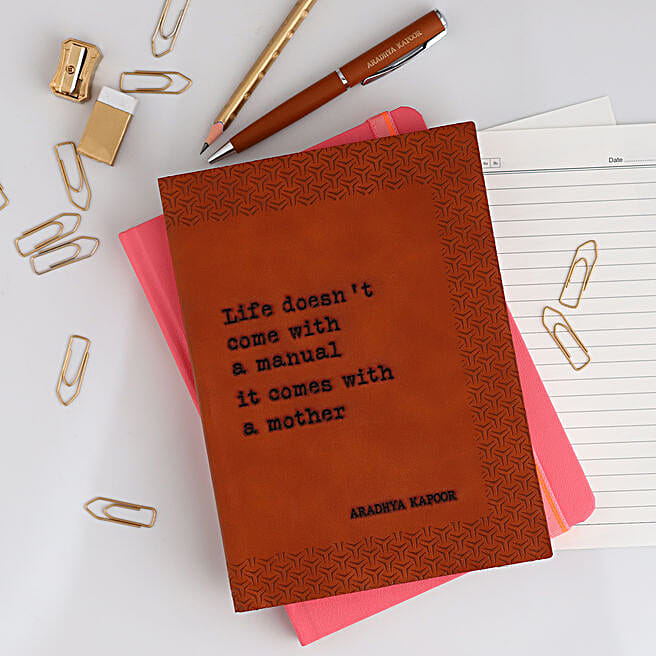 ARADHYA KAPOOR
Date
Life doesn't
come with
a manual
it comes with
a mother
ARADHYA KAPOOR